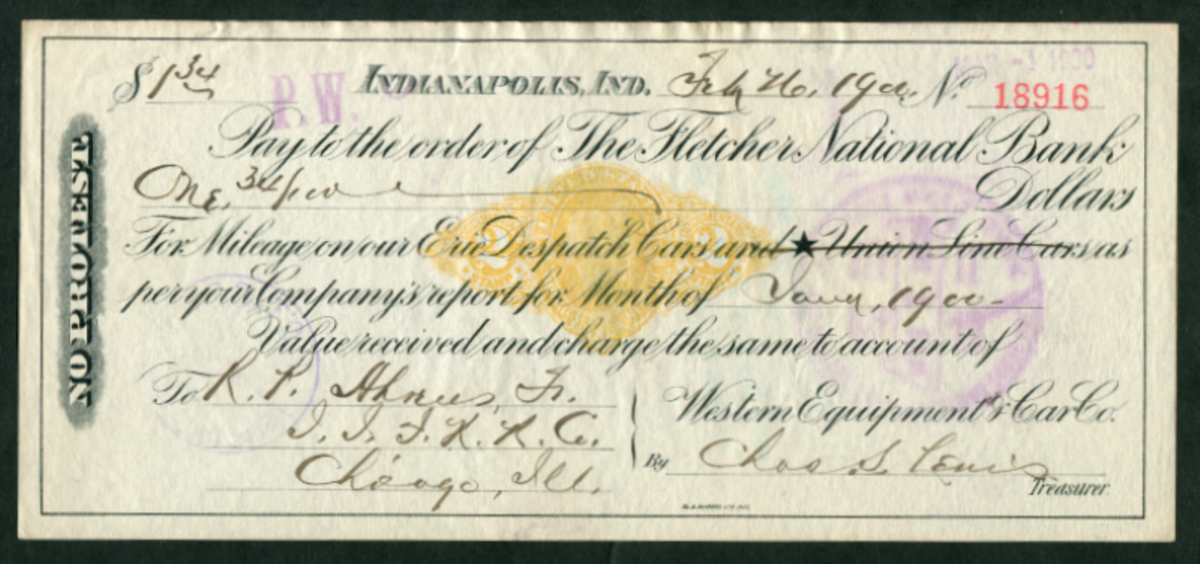 $ 1 34/ P. W. INDIANAPOLIS, IND. Feb 26, 1900. No. 18916
Pay to the order of The Fletcher National Bank
One, 34/100 Dollars
For Mileage on our Erie Despatch Cars and ★ Union Line Cars as
per your Company's report for Month of Jany, 1900-
Value received and charge the same to account of
To R. P. Tr.
R. R. Co.
Chicago, Ill.
Western Equipment & Car Co.
By Chas S. Lewis
Treasurer.
NO PROTEST
2 2